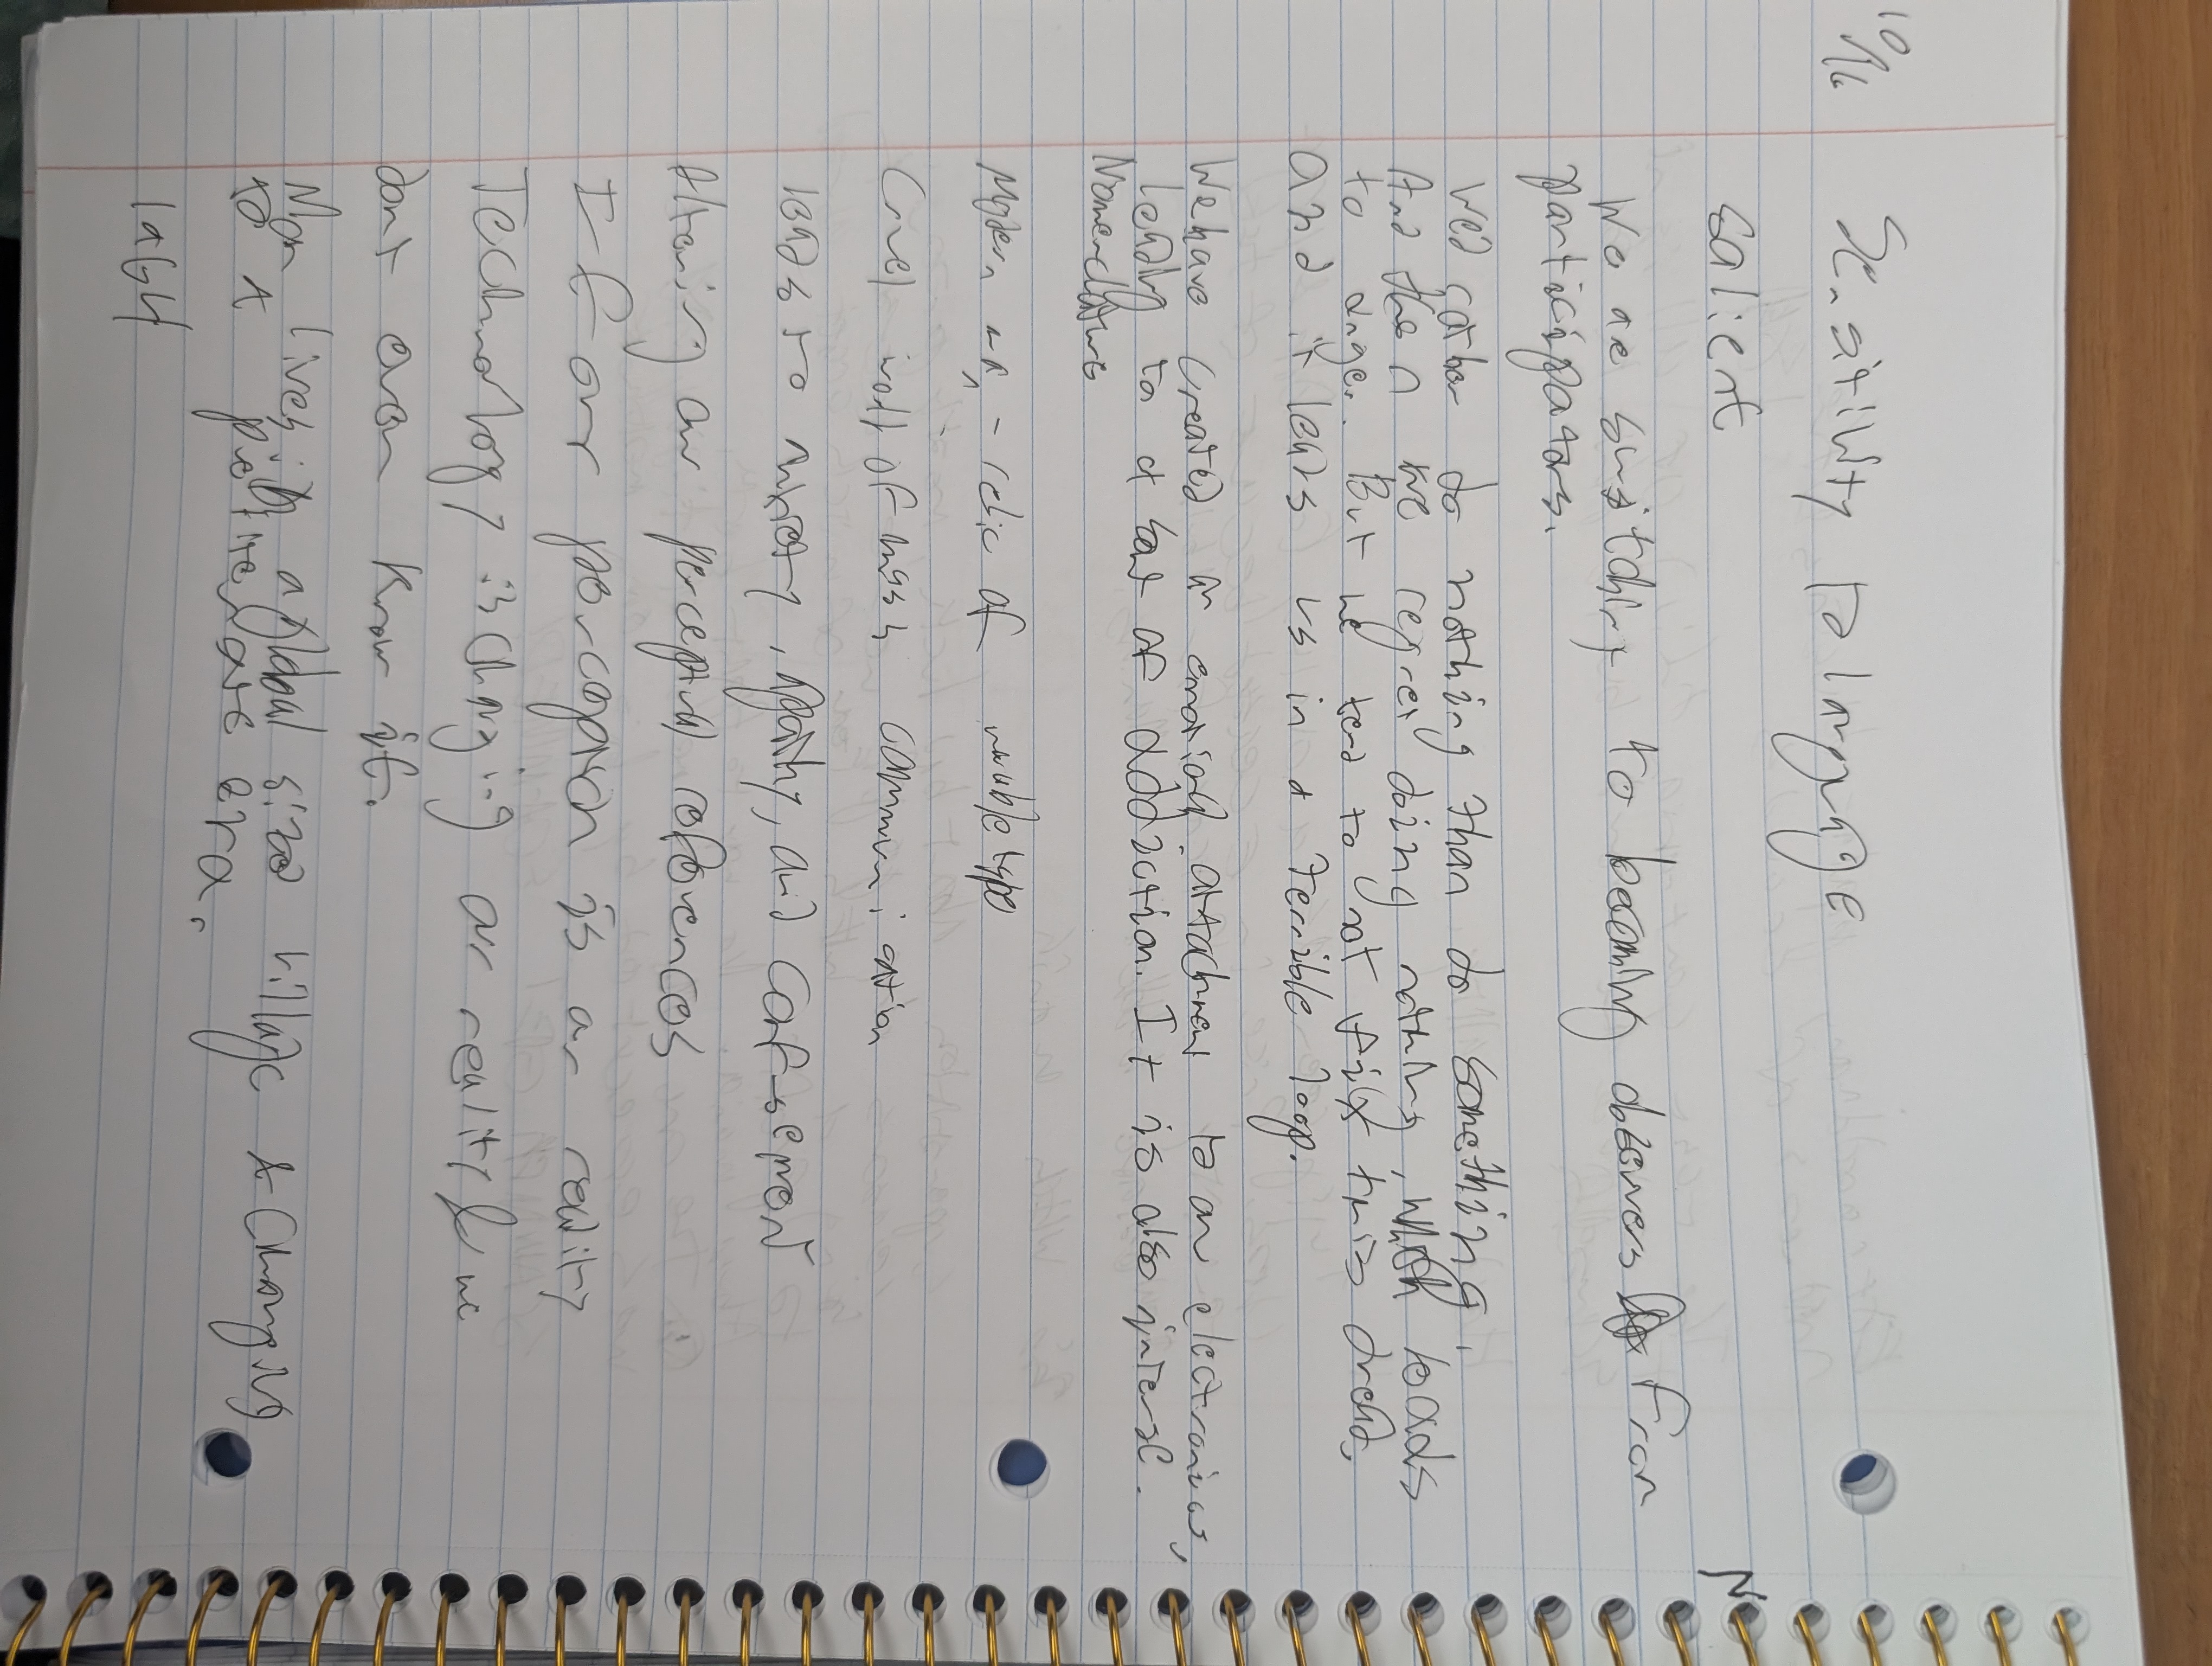 10/16
Sensitivity to language
salient
We are switching to becoming observers from
participators.
We'd rather do nothing than do something.
And then we regret doing nothing, which leads
to anger. But we tend to not fix this dread,
and it leaves us in a terrible loop.
We have created an emotional attachment to our electronics,
leading to a sort of addiction. It is also intense.
Nomenclature
Modern man - relic of movable type
Cruel world of mass communication
leads to anxiety, apathy, and
Altering our perceptual references
If our perception is our reality
Technology is changing our reality & we
dont even know it.
Man lives in a global size village & changing
to a era.